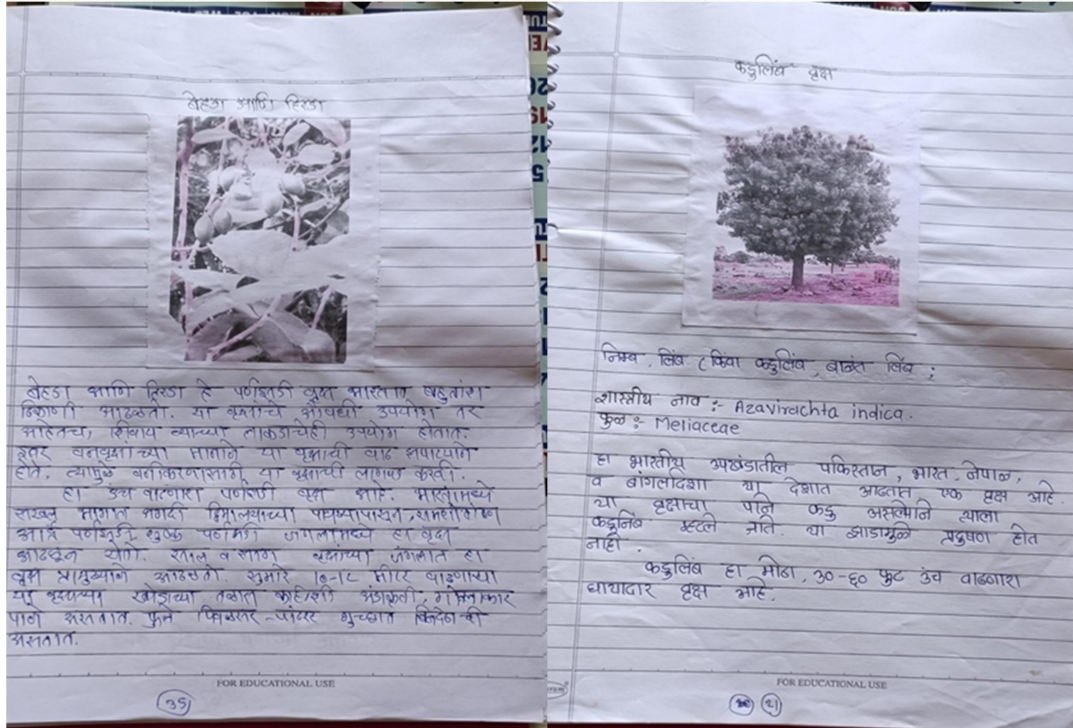 बेहडा आणि हिरडा
बेहडा आणि हिरडा हे पर्णझडी वृक्ष भारतात बहुतांश
ठिकाणी आढळतो. या वृक्षाचे औषधी उपयोग तर
आहेतच, शिवाय त्याच्या लाकडाचेही उपयोग होतात.
इतर वनवृक्षांच्या मानाने या वृक्षाची वाढ झपाट्याने
होते. त्यामुळे वनीकरणासाठी या वृक्षाची लागवड करावी.
हा उंच वाढणारा पर्णझडी वृक्ष आहे. भारतामध्ये
सखल भागात अगदी हिमालयाच्या पायथ्यापासून,
आर्द्र पर्णझडी शुष्क पर्णझडी जंगलामध्ये हा वृक्ष
आढळून येतो. साल व साग वृक्षांच्या जंगलात हा
वृक्ष प्रामुख्याने आढळतो. सुमारे १०-१८ मीटर वाढणाऱ्या
या वृक्षाच्या खोडाच्या तळात काहीशी अंडाकृती, गोलाकार
पाने असतात. फुले पिवळसर-पांढरट गुच्छात
असतात.
FOR EDUCATIONAL USE
35
कडुलिंब वृक्ष
निम्ब, लिंब (किंवा कडुलिंब, बाळंत लिंब;
शास्त्रीय नाव :- Azavirachta indica.
कुळ :- Meliaceae
हा भारतीय उपखंडातील पाकिस्तान, भारत, नेपाळ,
व बांगलादेश या देशात आढळणारा एक वृक्ष आहे.
या वृक्षाचा पाने कडू असल्याने त्याला
कडुनिंब म्हटले जाते. या झाडामुळे प्रदुषण होत
नाही.
कडुलिंब हा मोठा, ३०-६० फुट उंच वाढणारा
छायादार वृक्ष आहे.
FOR EDUCATIONAL USE
21